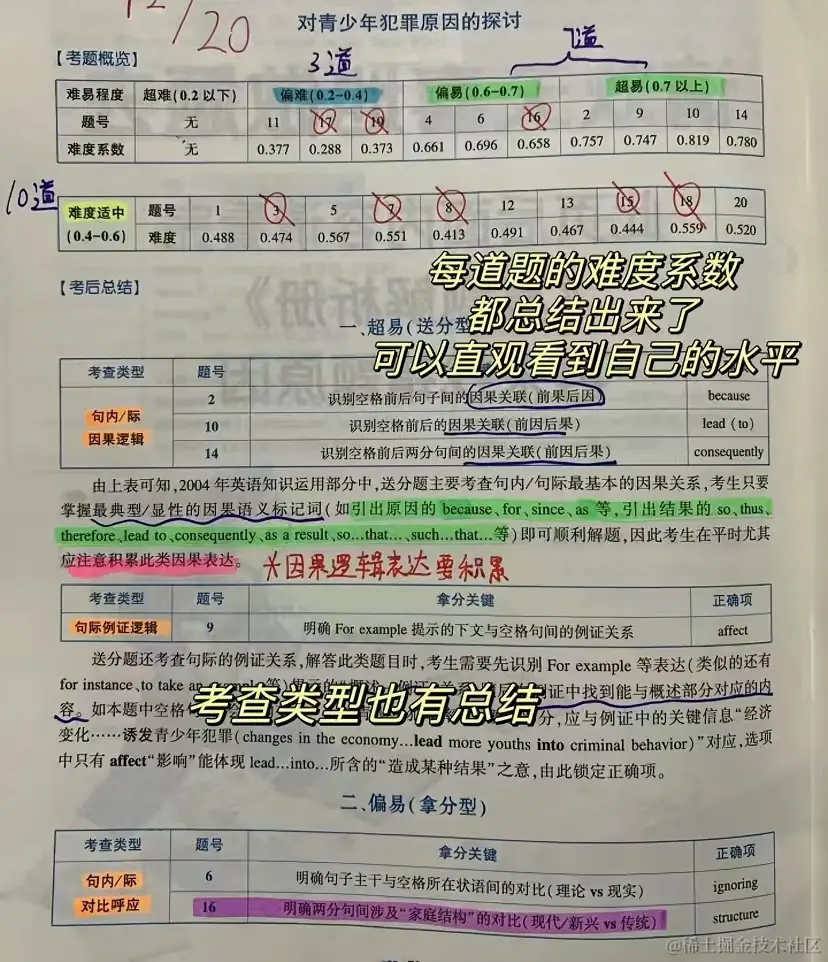 12/20
对青少年犯罪原因的探讨
【考题概览】
3道
7道
难易程度 超难(0.2以下) 偏难(0.2-0.4) 偏易(0.6-0.7) 超易(0.7以上)
题号 无 11 17 19 4 6 16 2 9 10 14
难度系数 无 0.377 0.288 0.373 0.661 0.696 0.658 0.757 0.747 0.819 0.780
10道
难度适中 题号 1 3 5 7 8 12 13 15 18 20
(0.4-0.6) 难度 0.488 0.474 0.567 0.551 0.413 0.491 0.467 0.444 0.559 0.520
每道题的难度系数
【考后总结】
都总结出来了
一、超易(送分型
可以直观看到自己的水平
考查类型 题号
句内/际
因果逻辑
2 识别空格前后句子间的因果关联(前果后因) because
10 识别空格前后的因果关联(前因后果) lead (to)
14 识别空格前后两分句间的因果关联(前因后果) consequently
由上表可知,2004年英语知识运用部分中,送分题主要考查句内/句际最基本的因果关系,考生只要
掌握最典型/显性的因果语义标记词(如引出原因的because、for、since、as等,引出结果的so、thus、
therefore、lead to、consequently、as a result、so…that…、such…that…等)即可顺利解题,因此考生在平时尤其
应注意积累此类因果表达。 *因果逻辑表达要积累
考查类型 题号 拿分关键 正确项
句际例证逻辑 9 明确For example提示的下文与空格句间的例证关系 affect
送分题还考查句际的例证关系,解答此类题目时,考生需要先识别For example等表达(类似的还有
for instance、to take an 例证中找到能与概述部分对应的内
考查类型也有总结
容。如本题中空格 分,应与例证中的关键信息“经济
变化……诱发青少年犯罪(changes in the economy…lead more youths into criminal behavior)”对应,选项
中只有affect“影响”能体现lead…into…所含的“造成某种结果”之意,由此锁定正确项。
二、偏易(拿分型)
考查类型 题号 拿分关键 正确项
句内/际
对比呼应
6 明确句子主干与空格所在状语间的对比(理论vs现实) ignoring
16 明确两分句间涉及“家庭结构”的对比(现代/新兴vs传统) structure
@稀土掘金技术社区